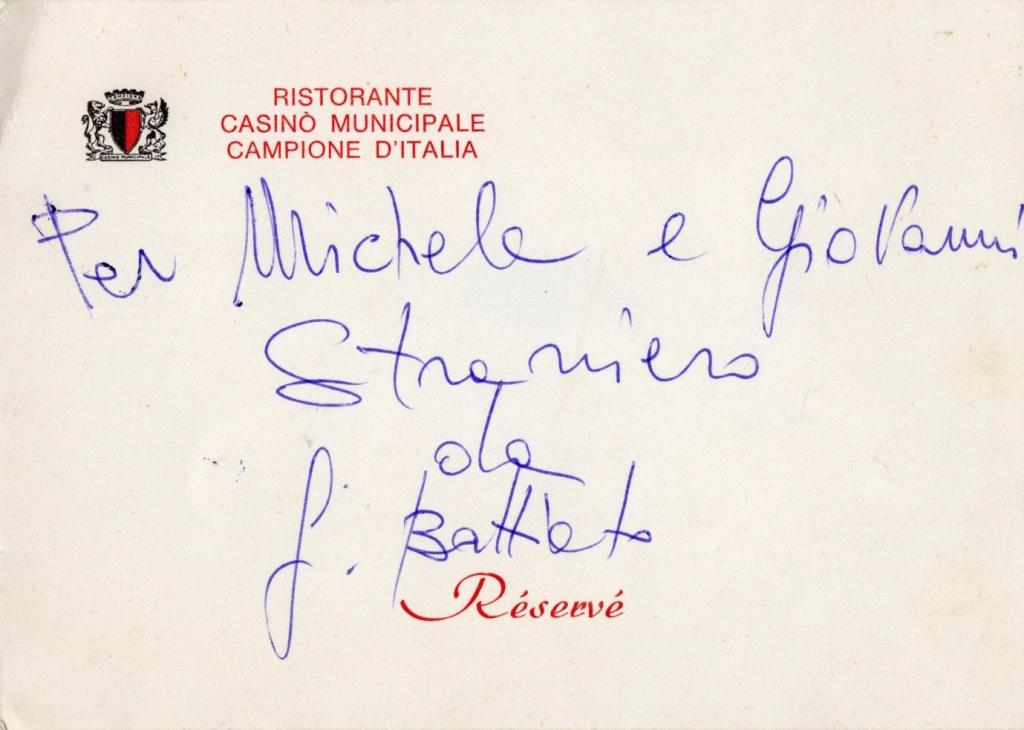 RISTORANTE
CASINÒ MUNICIPALE
CAMPIONE D'ITALIA
CASINO MUNICIPALE
Per Michele e Giovanni
Straniero
da
f. Battiato
Réservé